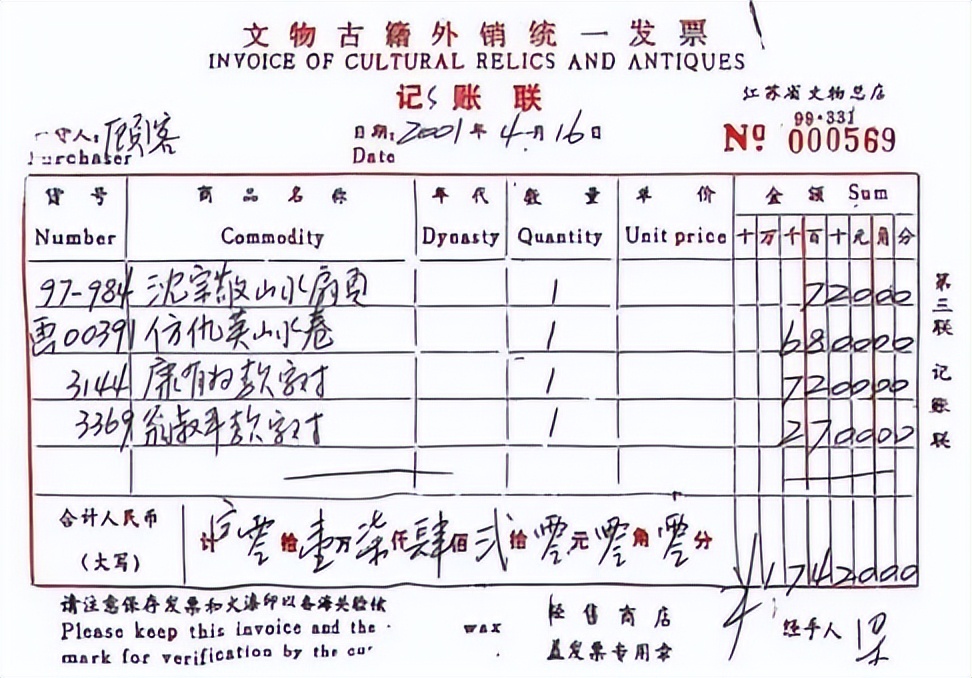 文物古籍外销统一发票
INVOICE OF CULTURAL RELICS AND ANTIQUES
记账联
江苏省文物总店
99·331
日期:2001年4月16日
顾客
Purchaser
Date
Nº 000569
货号 商品名称 年代 数量 单价 金额 Sum
Number Commodity Dynasty Quantity Unit price 十万千百十元角分
97-984 沈宗敬山水扇页 1 72000
雲00391 仿仇英山水卷 1 680000
3144 康有为款字对 1 720000
3369 翁叔平款字对 1 270000
第三联 记账联
合计人民币 计 零拾壹万柒仟肆佰贰拾零元零角零分
(大写) ¥1742000
请注意保存发票和火漆印以备海关验
Please keep this invoice and the wax
mark for verification by the
经售商店
盖发票专用章
经手人